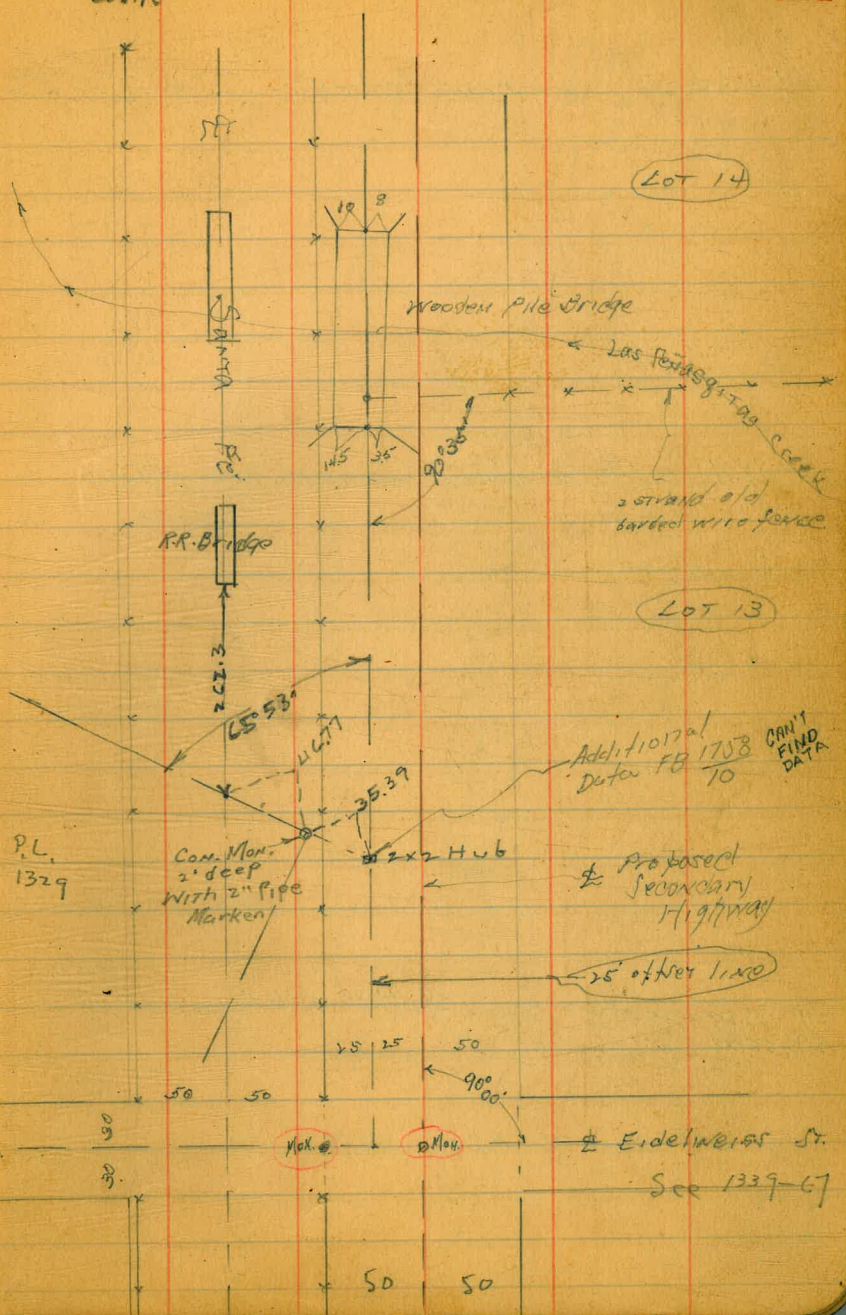 LOT 14
10 8
Wooden Pile Bridge
Las Peñasquitas Creek
SANTA
Fe
14.5 3.5
2 strand old
barded wire fence
R.R. Bridge
LOT 13
262.3
65°53'
46.77
35.39
Additional
Data FB 1758
10
CAN'T
FIND
DATA
2x2 Hub
P.L.
1329
Con. Mon.
2' deep
With 2" pipe
Marker
℄ Proposed
Secondary
Highway
25' offset line
25 25 50
50 50
90°
00'
30
30
Mon. Mon.
℄ Eidelweiss St.
See 1339-67
50 50